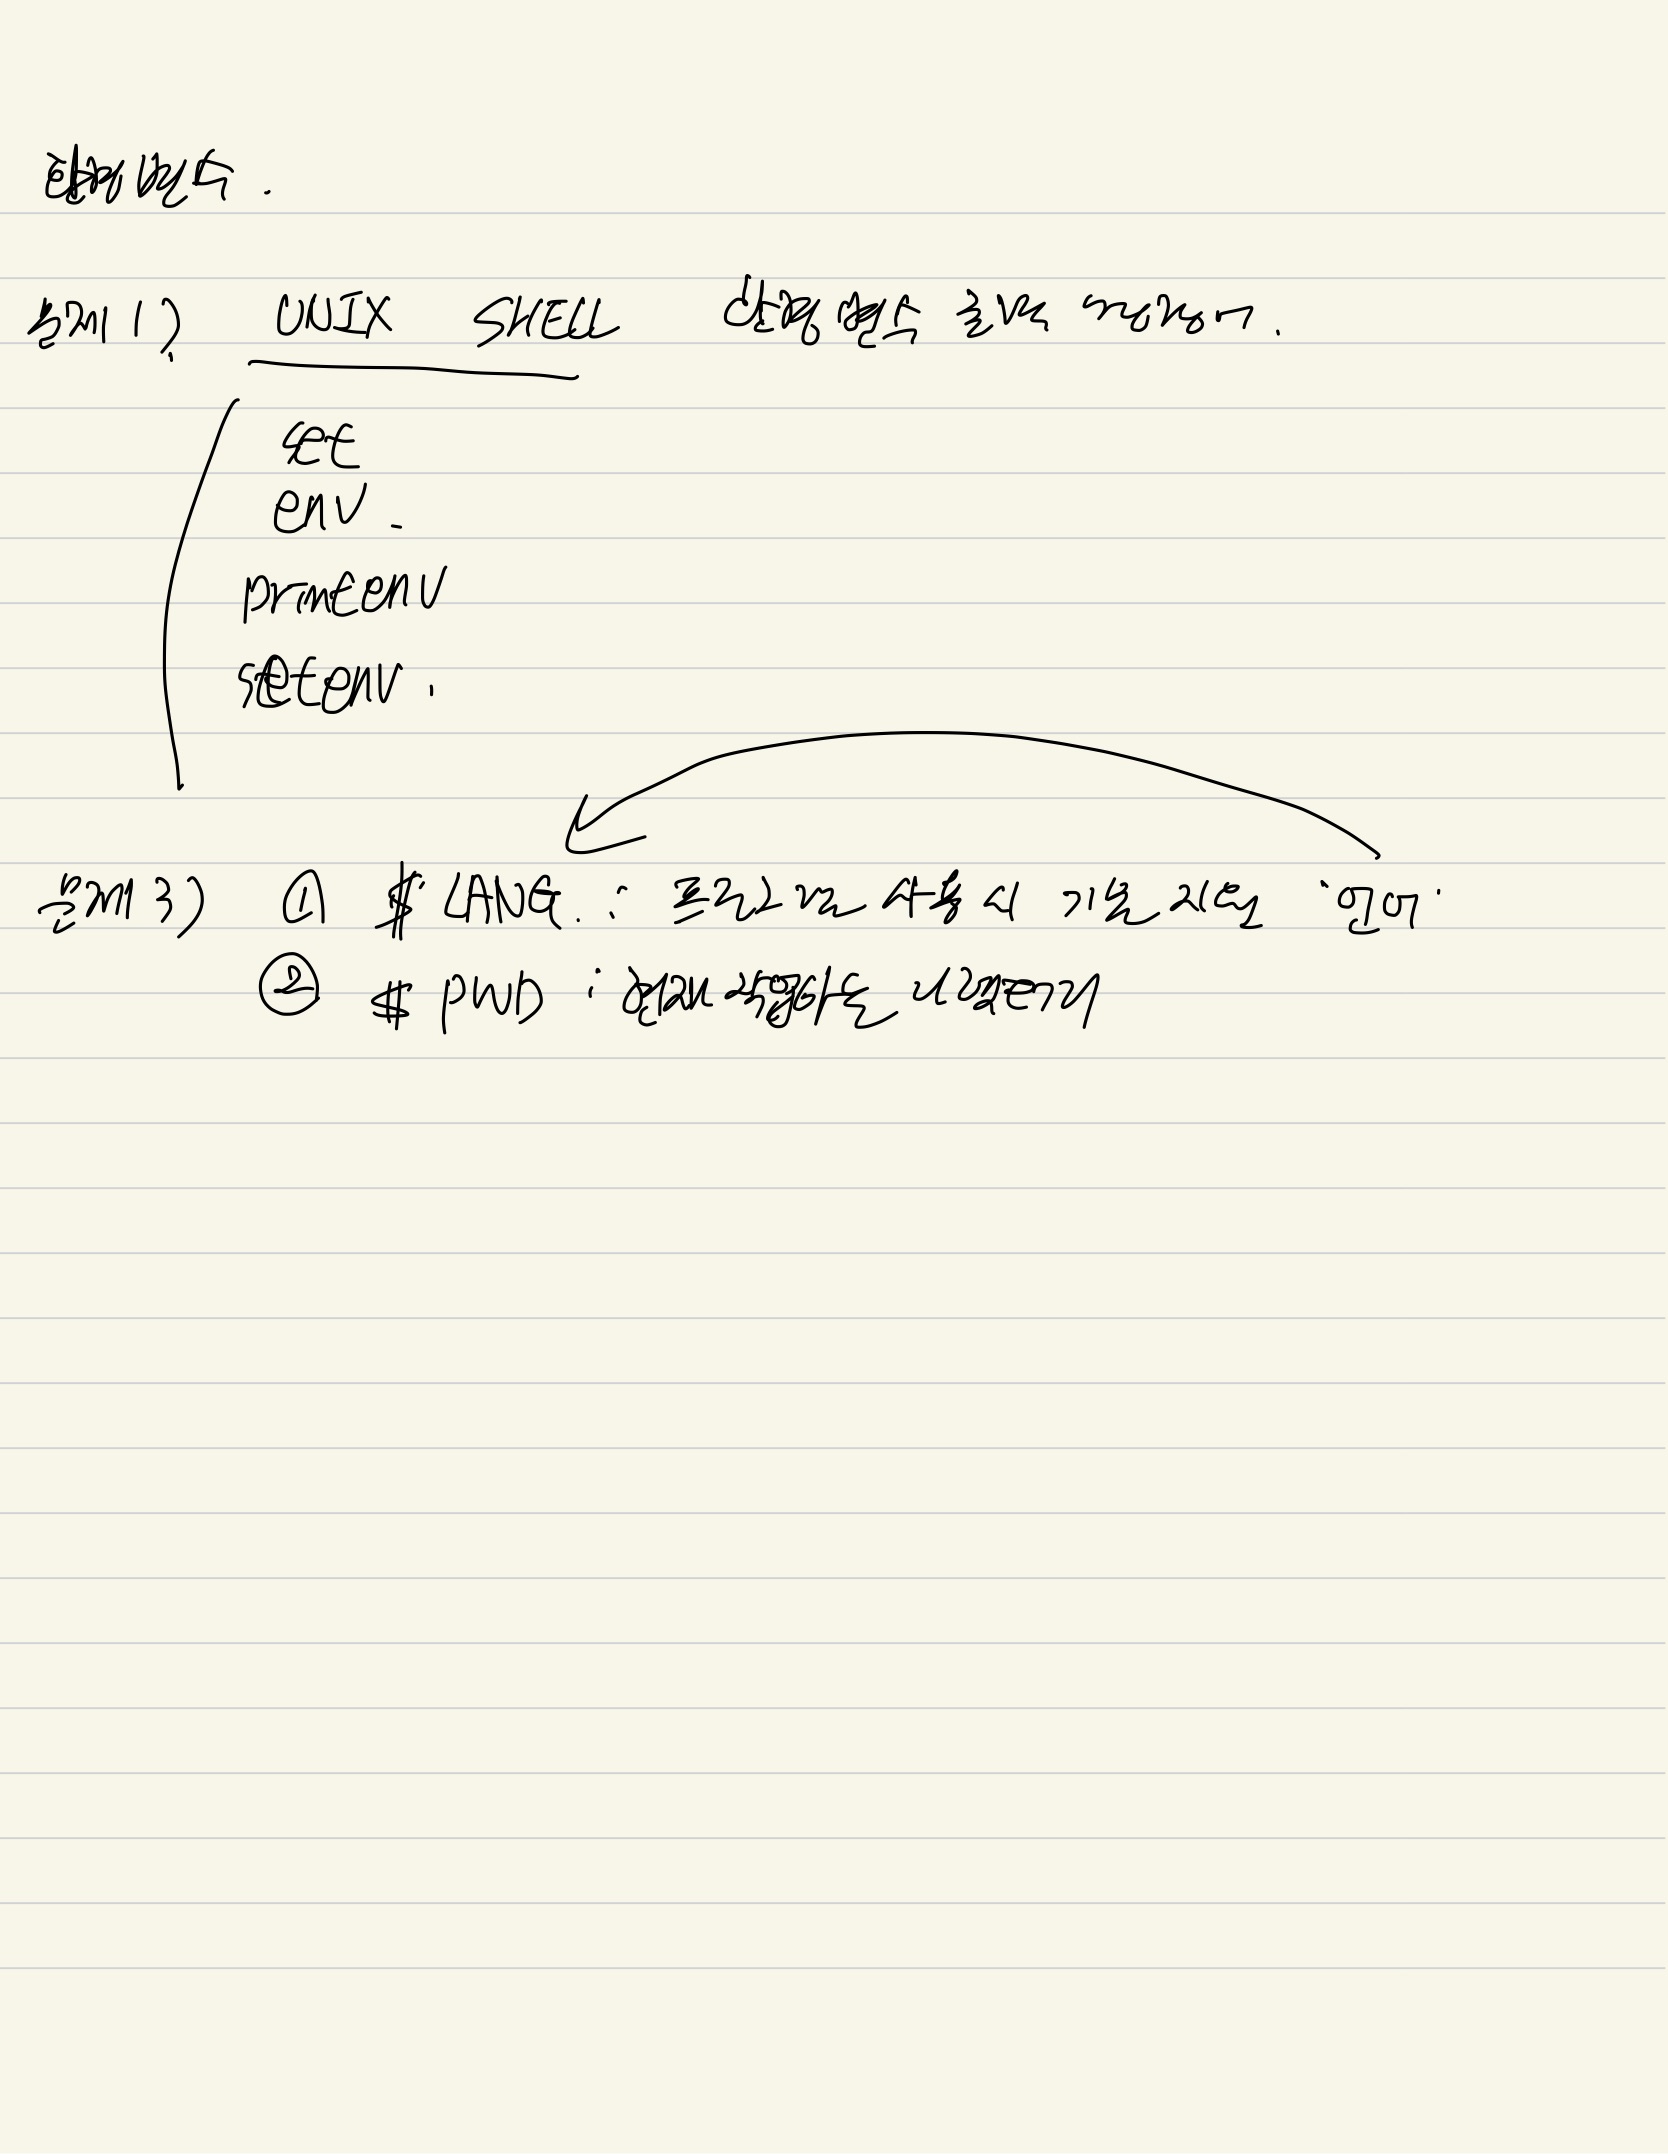 환경변수.
문제 1) UNIX SHELL 환경변수 출력 명령어.
set
env.
printenv
setenv.
문제 3) ① $ LANG. : 프로그램 사용시 기본 지원 '언어'
② $ PWD : 현재 작업하는 디렉토리